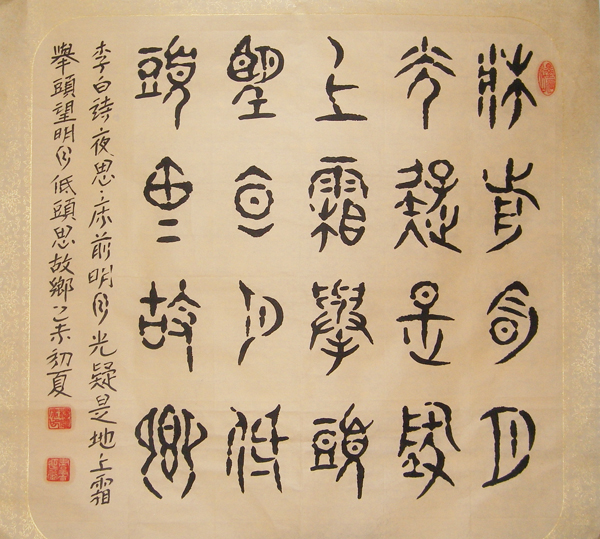 牀前明月
光疑是地
上霜舉頭
望明月低
頭思故鄉
李白詩夜思·床前明月光疑是地上霜
舉頭望明月低頭思故鄉乙未初夏